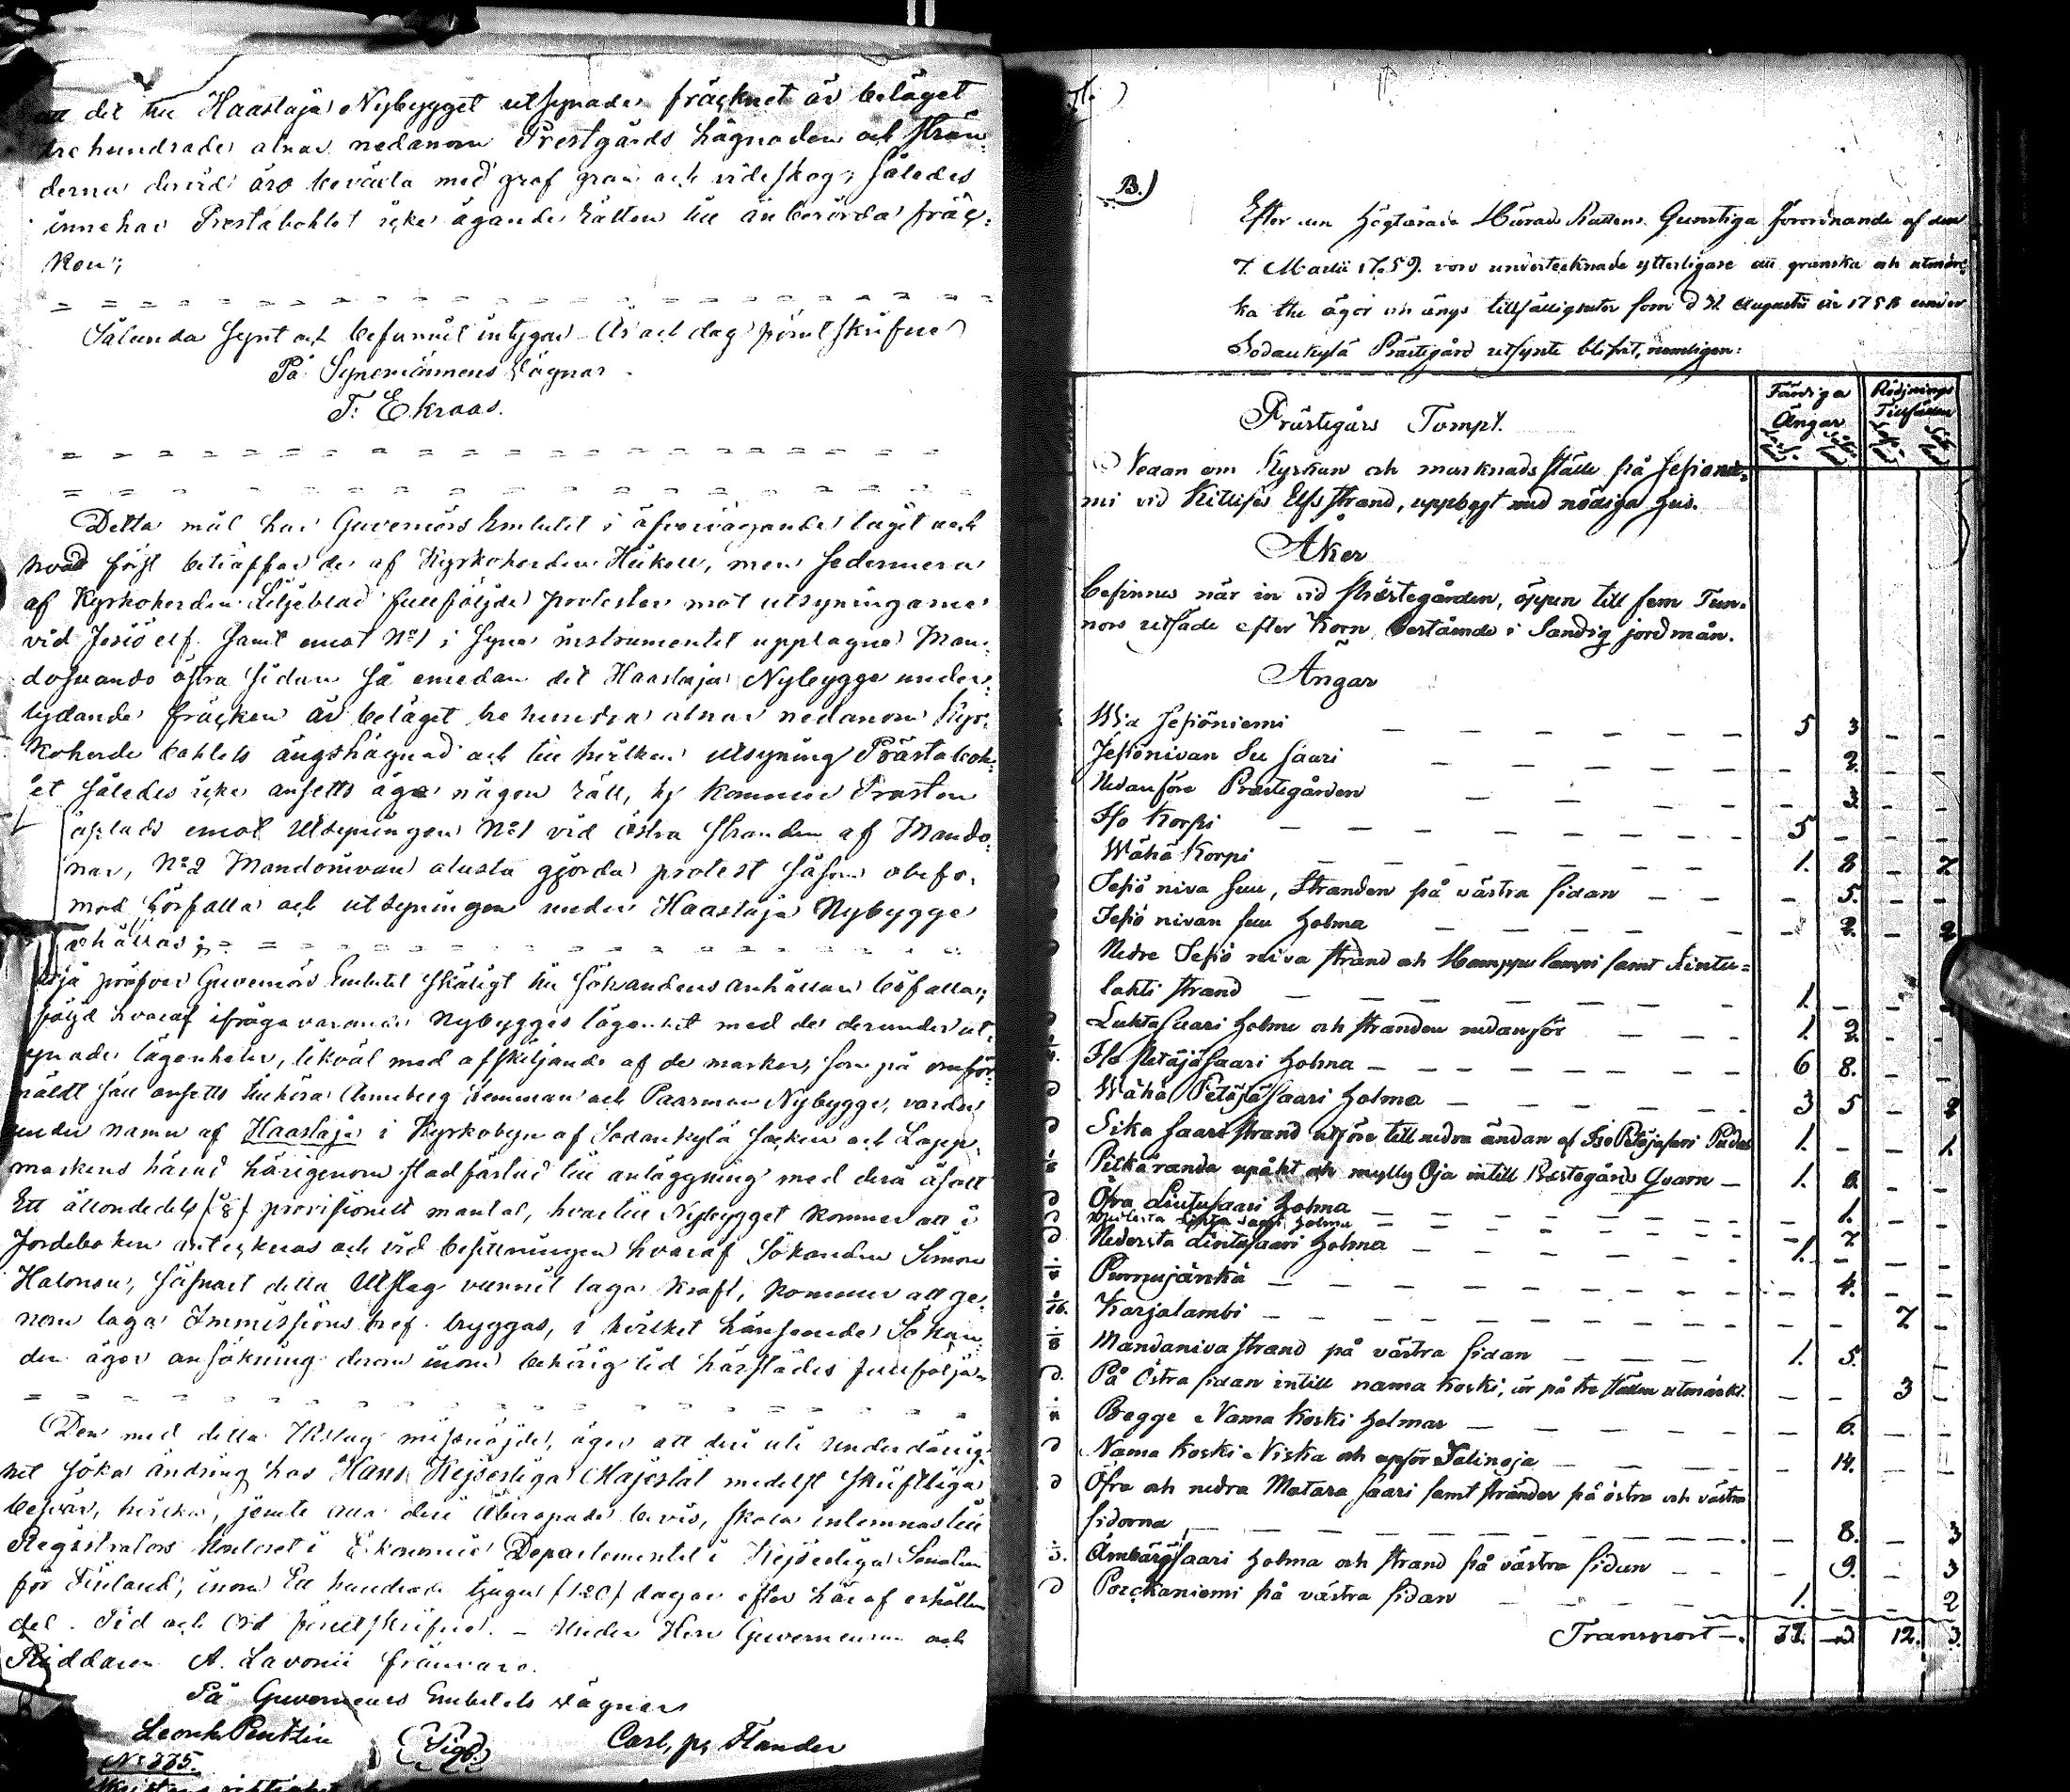 att det till Haastaja Nybygget utsynade fräcknet är beläget
tre hundrade alnar nedanom Prestgårds hägnaden och strän-
derna dervid äro bevexta med graf gran och videskog; således
innehar Prestabohlet icke ägande rätten till änberörda fräc-
ken;
Sålunda synt och befunnit intygar År och dag förut skrifne
På Synemännens vägnar
T: Ekroos.
Detta mål har Guvernörs Embetet i öfvervägande taget och
hvad först beträffar de af Kyrkoherden Heikell, men sedermera
af Kyrkoherden Liljeblad fullföljde protester mot utsyningarne
vid Jesiö elf samt emot No 1 i Syne instrumentet upptagne Man-
dosuando östra sidan så emedan det Haastaja Nybygge under-
lydande fräcken är beläget tre hundra alnar nedanom Kyr-
koherde bohlets ängshägnad och till hvilken utsyning Prästaboh-
let således icke ansetts äga någon rätt, ty kommer Prosten
emot Utsyningen No 1 vid östra stranden af Mando-
No 2 Mandonivan alusta gjorda protest såsom obefo-
gad förfalla och utsyningen under Haastaja Nybygge
behållas;
pröfvar Guvernörs Embetet skäligt till sökandens anhållan bifalla;
följd hvaraf ifråga varande Nybygges lägenhet med de derunder ut-
synade lägenheter, likväl med afskiljande af de marker, som på omför-
mäldt sätt ansetts tillhöra Anneberg Hemman och Paarman Nybygge, varder
under namn af Haastaja i Kyrkobyn af Sodankylä Socken och Lapp-
markens härad härigenom stadfästad till anläggning med derå åsatt
Ett åttondedels (1/8) provisionelt mantal, hvartill Nybygget kommer att i
Jordeboken antecknas och vid besittningen hvaraf Sökanden Simon
Halonen, såsnart detta Utslag vunnit laga kraft, kommer att ge-
nom laga Immissions bref tryggas, i hvilket hänseende Sökan-
den äger ansökning derom inom behörig tid härstädes fullfölja
Den med detta Utslag missnöjde, äger att deri uti underdånig-
het söka ändring hos Hans Kejserliga Majestät medelst skriftliga
besvär, hvilka, jemte alla deri åberopade bevis, skola inlemnas till
Registrators Kontoret i Ekonomie Departementet i Kejserliga Senaten
för Finland, inom Ett hundrade tjugu (120) dagar efter häraf erhållen
del. Tid och Ord förutskrifne. - Under Herr Guverneuren och
Riddaren A. Lavonii frånvaro.
På Guverneurs Embetets vägnar
Leonh Pentzin (Sigil.) Carl, pr Flander
No 335.
B.)
Efter den Högtärade Härads Rättens Gunstiga förordnande af den
7. Martii 1759. vore undertecknade ytterligare att granska och utmär-
ka the ägor och ängs tillfälligheter som d 31 Augusti år 1758 under
Sodankylä Prästegård utsynte blifvit, nemligen:
Färdiga Ängar
Rödjnings Tillfällen
Prästegårs Tompt.
Nedan om Kyrkan och marknads ställe på Jesiönie-
mi vid Kittilse Elfs strand, uppbygt med nödiga hus.
Åker
befinnes när in vid Prästegården, öppen till fem Tun-
nors utsäde efter Korn, bestående i Sandig jordmån.
Ängar
Wid Jesiöniemi 5 3 - -
Jesiönivan Su saari - 2. - -
Nedanföre Prästegården - 3 - -
Iso Korpi 5 - - -
Wähä Korpi 1. 8 - 2
Jesiö niva suu, Stranden på västra sidan - 5. -
Jesiö nivan suu holma - 2. - 2
Nedre Jesiö niva strand och Hamppu lampi samt Lintu-
lahti strand 1. - -
Luhta saari holme och stranden nedanför 1. 2. -
Iso Petäjä saari holma 6 8. - -
Wähä Petäjä saari holma 3 5 - 2
Sika saari strand utföre till nedra ändan af Iso Petäjäsaari Pudas 1. - - 1.
Pitkäranda upåht och mylly Oja intill Prästegårds Qvarn 1. 2. -
Öfra Lintusaari holma - 1. -
Medlersta Lintu saari holma - 7 -
Nedersta Lintusaari holma 1. - -
Purnujänkä - 4. - -
Karjalambi - - 7 -
Mandaniva strand på västra sidan 1. 5. -
På Östra sidan intill nama koski, är på tre ställen utmärkt. - - 3 -
Begge Nama koski holmar - 6. - -
Nama koski Niska och upför Salinoja - 14. - -
Öfra och nedra Matara saari samt stränder på östra och västra
sidorna - 8. - 3
Ämbärgsaari holma och strand på västra sidan - 9. - 3
Porckaniemi på västra sidan 1. - - 2
Transport 37. 12. 3.